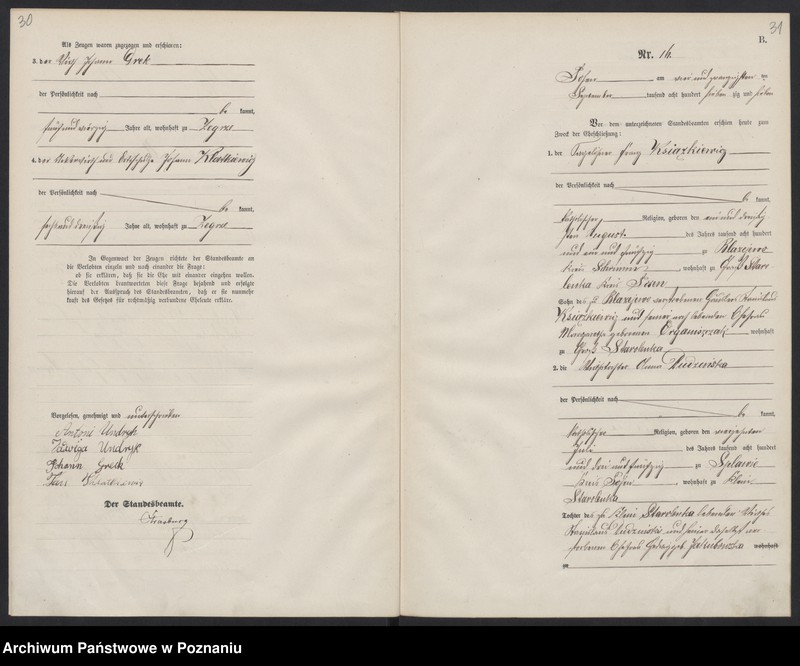 30
Als Zeugen waren zugezogen und erschienen:
3. der Wirth Johann Grek
der Persönlichkeit nach
be kannt,
fünfundvierzig Jahre alt, wohnhaft zu Zegrze
4. der Johann
der Persönlichkeit nach
be kannt,
sechsunddreißig Jahre alt, wohnhaft zu Zegrze
In Gegenwart der Zeugen richtete der Standesbeamte an
die Verlobten einzeln und nach einander die Frage:
ob sie erklären, daß sie die Ehe mit einander eingehen wollen.
Die Verlobten beantworteten diese Frage bejahend und erfolgte
hierauf der Ausspruch des Standesbeamten, daß er sie nunmehr
kraft des Gesetzes für rechtmäßig verbundene Eheleute erkläre.
Vorgelesen, genehmigt und unterschrieben
Antoni Undryk
Jadwiga Undryk
Johann Grek
Der Standesbeamte.
31
B.
Nr. 16.
Posen am vier und zwanzigsten ten
September tausend acht hundert sieben zig und sieben
Vor dem unterzeichneten Standesbeamten erschien heute zum
Zweck der Eheschließung:
1. der Tagelöhner Franz Książkiewicz
der Persönlichkeit nach
be kannt,
katholischer Religion, geboren den ein und dreißig
sten August des Jahres tausend acht hundert
und ein und fünfzig zu Błażejewo
Kreis Schrimm, wohnhaft zu Groß Staro-
lenka Kreis Posen
Sohn des zu Błażejewo verstorbenen
Książkiewicz und seiner noch lebenden Ehefrau
Margaretha geborenen Organiszczak wohnhaft
zu Groß Starolenka
2. die Wirthstochter Anna Dudzińska
der Persönlichkeit nach
be kannt,
katholischer Religion, geboren den vierzehnten
des Jahres tausend acht hundert
und drei und fünfzig zu Spławie
Kreis Posen, wohnhaft zu Klein
Starolenka
Tochter des zu Klein Starolenka lebenden Wirths
Dudziński und seiner daselbst ver-
storbenen Ehefrau wohnhaft
zu
Archiwum Państwowe w Poznaniu